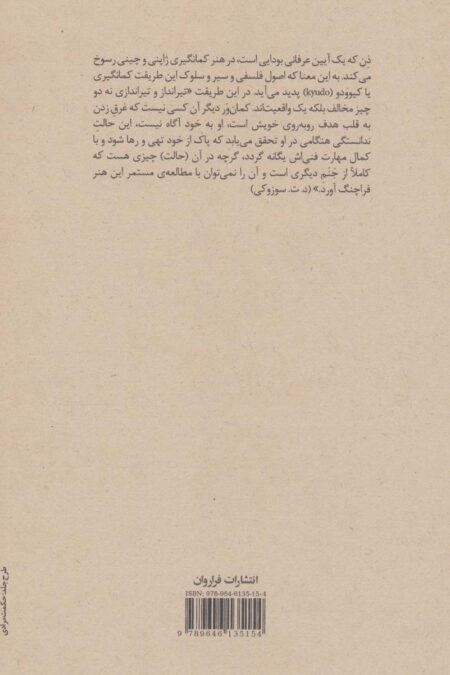 ذِن که یک آیین عرفانی بودایی است، در هنر کمانگیری ژاپنی و چینی رسوخ
می‌کند. به این معنا که اصول فلسفی و سیر و سلوک این طریقت کمانگیری
یا کیوودو (kyudo) پدید می‌آید. در این طریقت «تیرانداز و تیراندازی نه دو
چیز مخالف بلکه یک واقعیت‌اند. کمان‌وَر دیگر آن کسی نیست که غرقِ زدن
به قلب هدف روبه‌روی خویش است، او به خود آگاه نیست، این حالتِ
ندانستگی هنگامی در او تحقق می‌یابد که پاک از خود تهی و رها شود و با
کمال مهارت فنی‌اش یگانه گردد، گرچه در آن (حالت) چیزی هست که
کاملاً از جَنَم دیگری است و آن را نمی‌توان با مطالعه‌ی مستمر این هنر
فراچنگ آورد.» (د. ت. سوزوکی)
انتشارات فراروان
ISBN: 978-964-6135-15-4
9 789646 135154
طرح جلد: حکمت مرادی